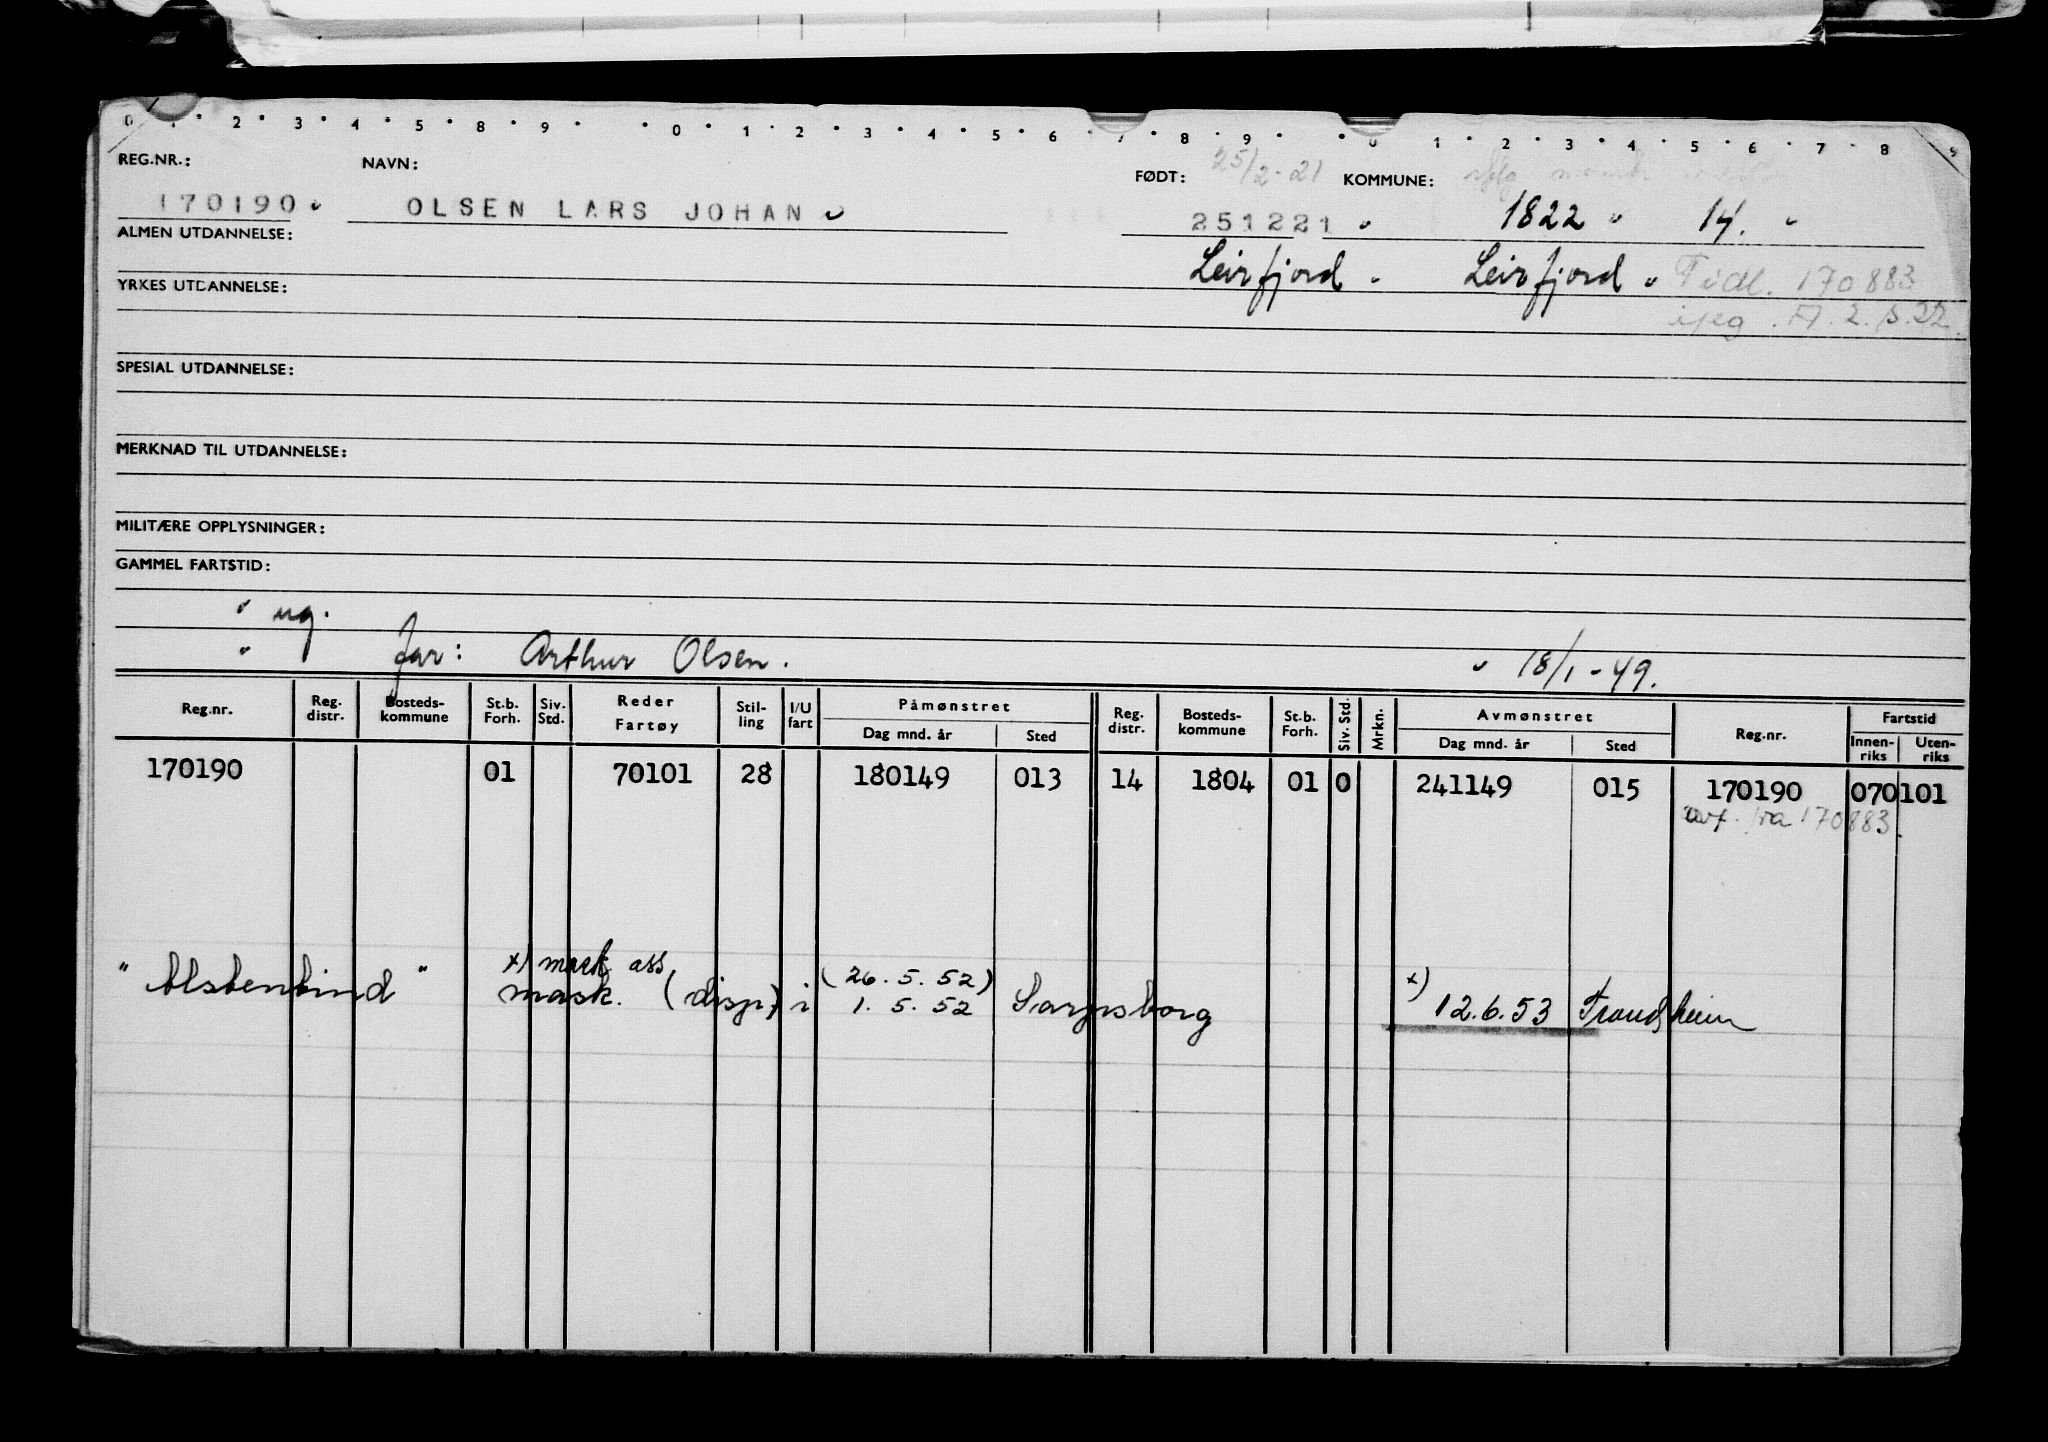 0 . 2 3 4 5 8 9 0 1 2 3 4 5 6 7 8 9 0 1 2 3 4 5 6 7 8 9
REG.NR.: NAVN: FØDT: 25/2-21 KOMMUNE:
170190 OLSEN LARS JOHAN 251221 1822 14.
ALMEN UTDANNELSE: Leirfjord Leirfjord Tidl. 170883
YRKES UTDANNELSE: A. 2. s. 22.
SPESIAL UTDANNELSE:
MERKNAD TIL UTDANNELSE:
MILITÆRE OPPLYSNINGER:
GAMMEL FARTSTID:
ug.
far: Arthur Olsen. 18/1-49.
Reg.nr. Reg. distr. Bosteds-kommune St.b. Forh. Siv. Std. Reder Fartøy Stil-ling I/U fart Påmønstret Dag mnd. år Sted Reg. distr. Bosteds-kommune St.b. Forh. Siv. Std. Mrkn. Avmønstret Dag mnd. år Sted Reg.nr. Fartstid Innen-riks Uten-riks
170190 01 70101 28 180149 013 14 1804 01 0 241149 015 170190 070101
ovf. fra 170883.
x) mask ass (26.5.52) x)
"Alstentind" mask. (disp) i 1.5.52 Sarpsborg 12.6.53 Trondheim